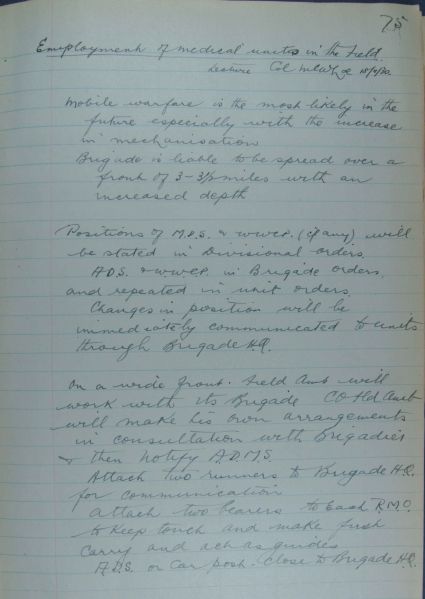 75
Employment of medical units in the Field.
Lecture Col
Mobile warfare is the most likely in the
future especially with the increase
in mechanisation
Brigade is liable to be spread over a
front of 3-3½ miles with an
increased depth
Positions of M.D.S. & W.W.C.P. (if any) will
be stated in Divisional orders.
A.D.S. & W.W.C.P. in Brigade orders,
and repeated in unit orders.
Changes in position will be
immediately communicated to units
through Brigade H.Q.
On a wide front. Field Amb will
work with its Brigade CO Fld Amb
will make his own arrangements
in consultation with Brigadier
& then notify A.D.M.S.
Attach two runners to Brigade H.Q.
for communication
Attach two bearers to Each R.M.O.
to keep touch and make first
carry and act as guides
A.D.S. or Car post. Close to Brigade H.Q.